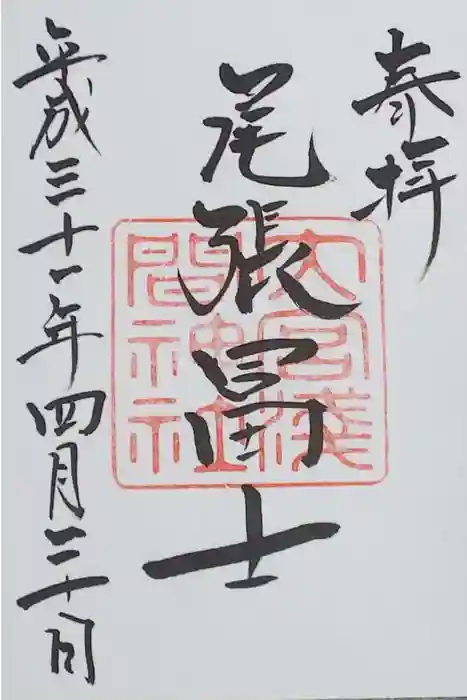 奉拝
尾張冨士
大宮淺
間神社
平成三十一年四月三十日